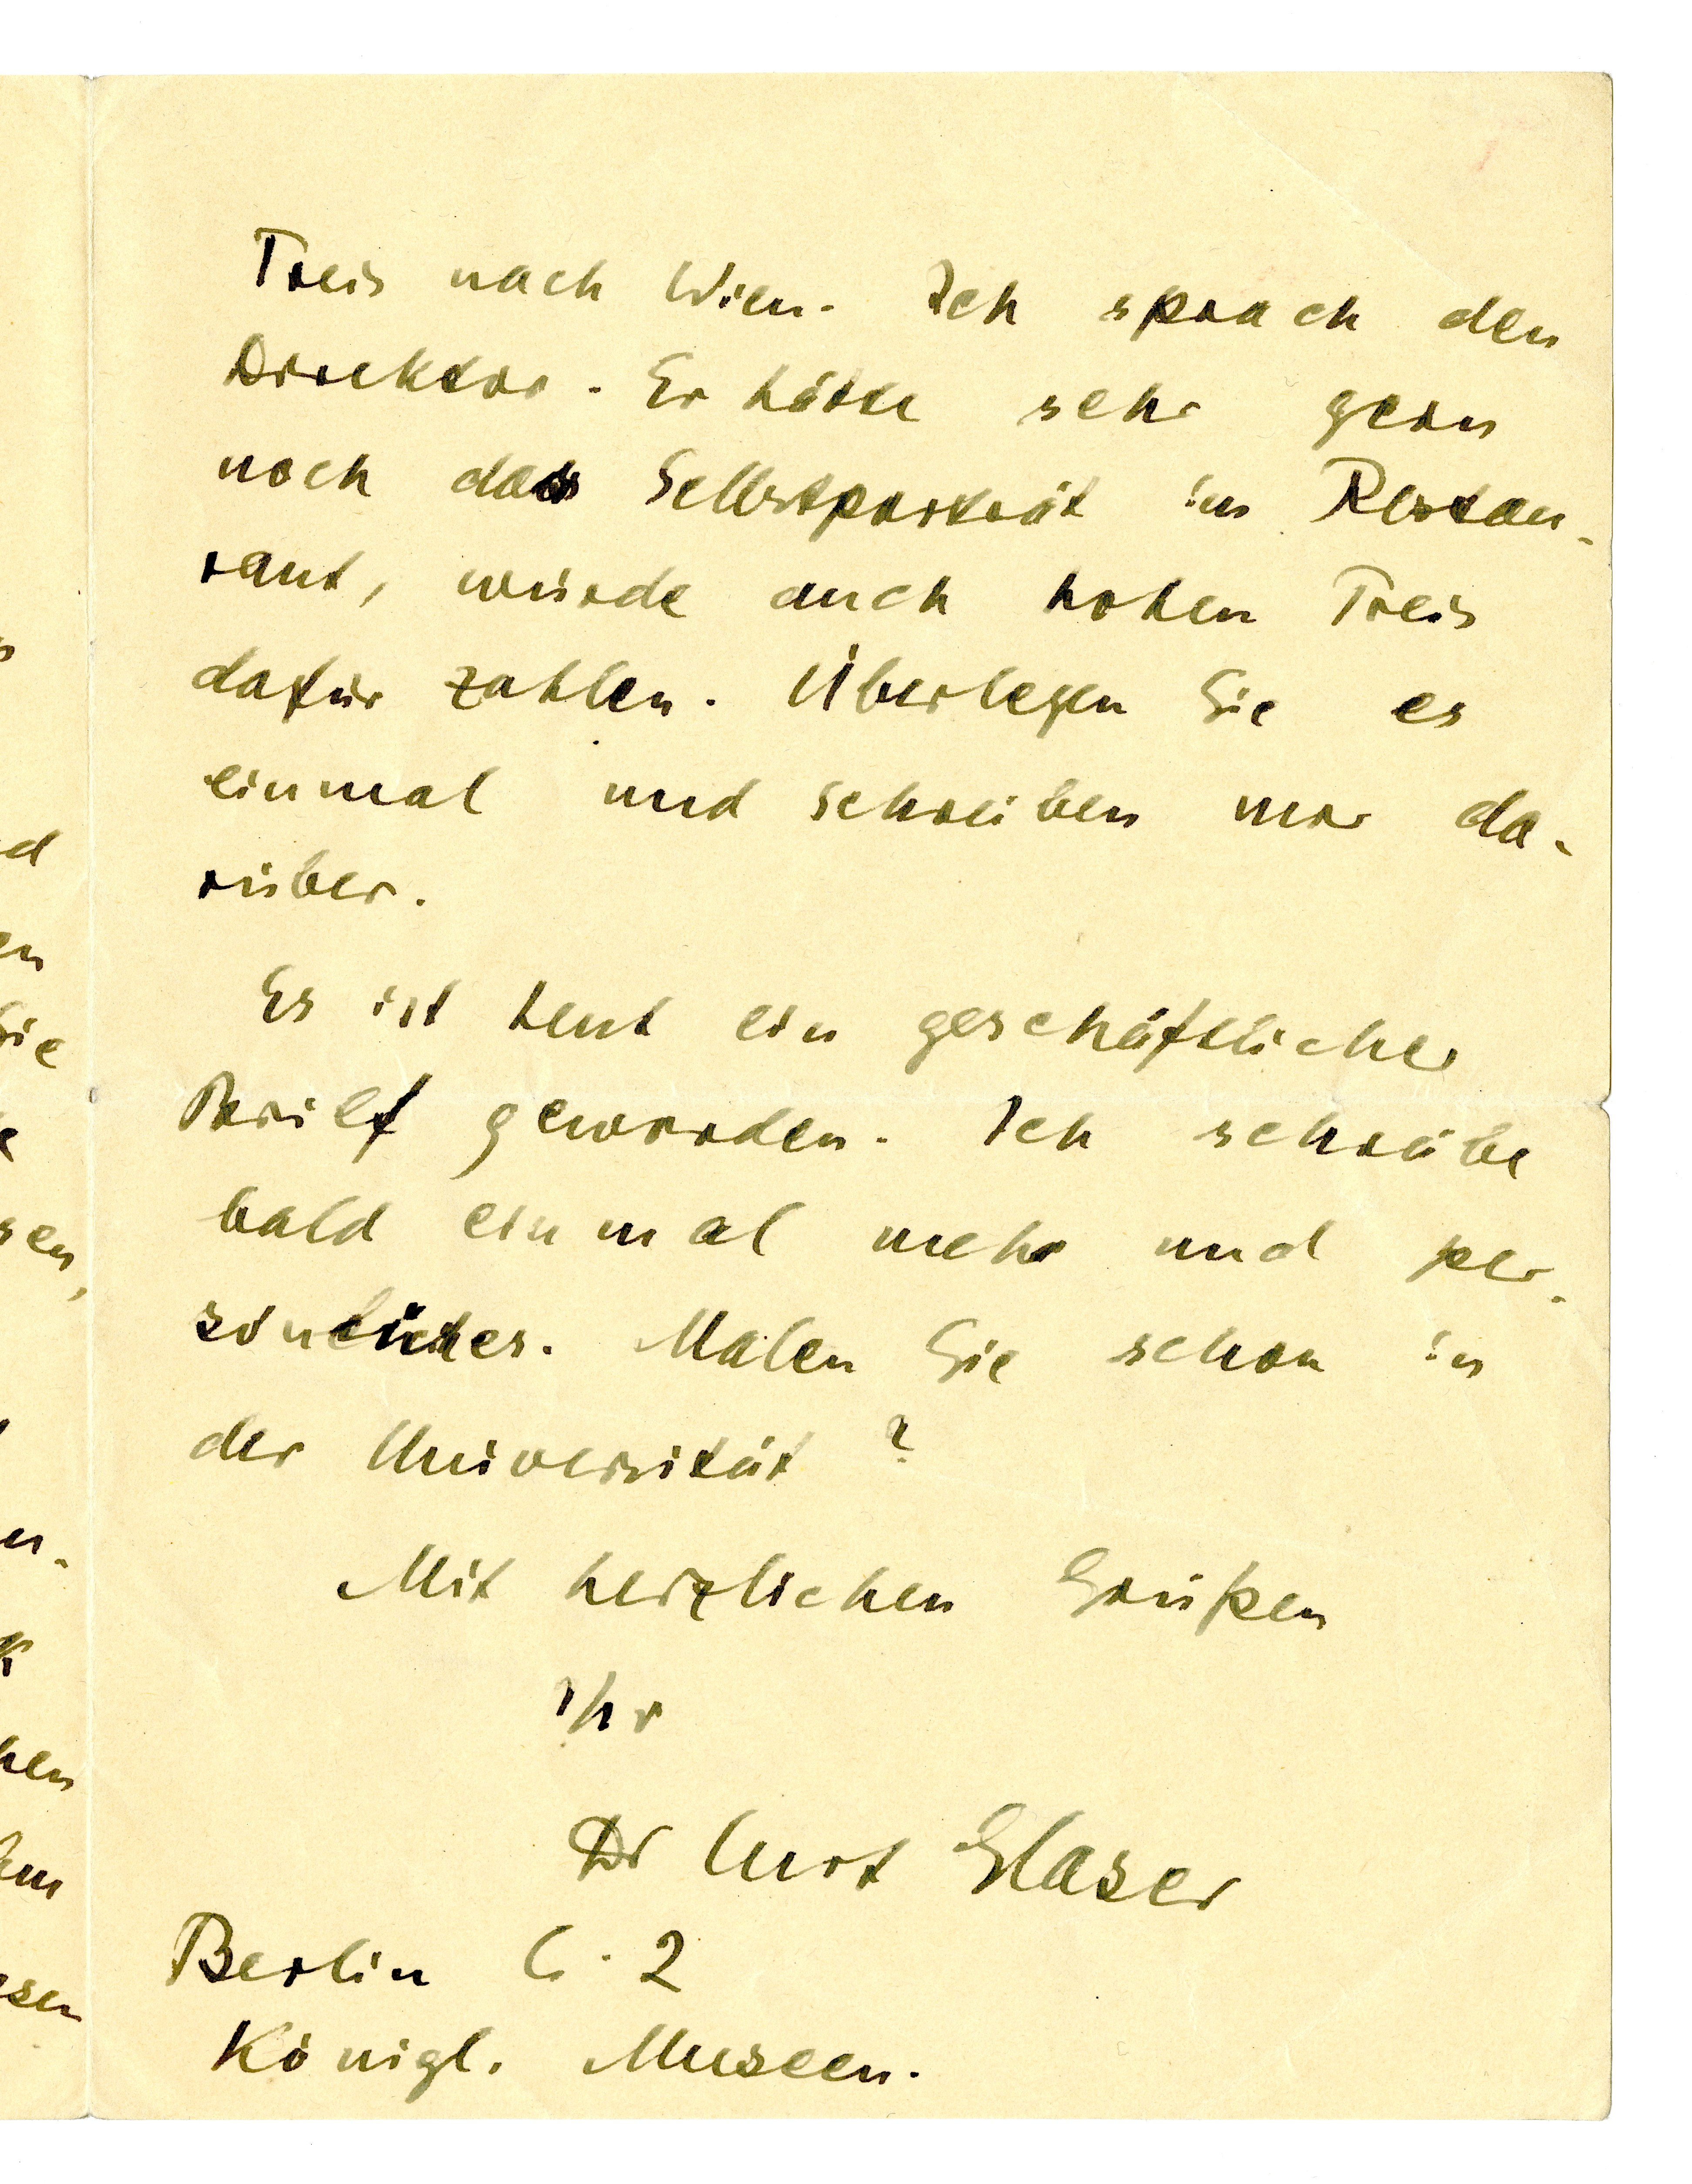 Preis nach Wien. Ich sprach den
Direktor. Er hätte sehr gern
noch das Selbstporträt im Restau-
rant, würde auch hohen Preis
dafür zahlen. Überlegen Sie es
einmal und schreiben mir da-
rüber.
Es ist heut ein geschäftlicher
Brief geworden. Ich schreibe
bald einmal mehr und per-
sönliches. Malen Sie schon in
der Universität?
Mit herzlichen Grüßen
Ihr
Dr Curt Glaser
Berlin C. 2
Königl. Museen.